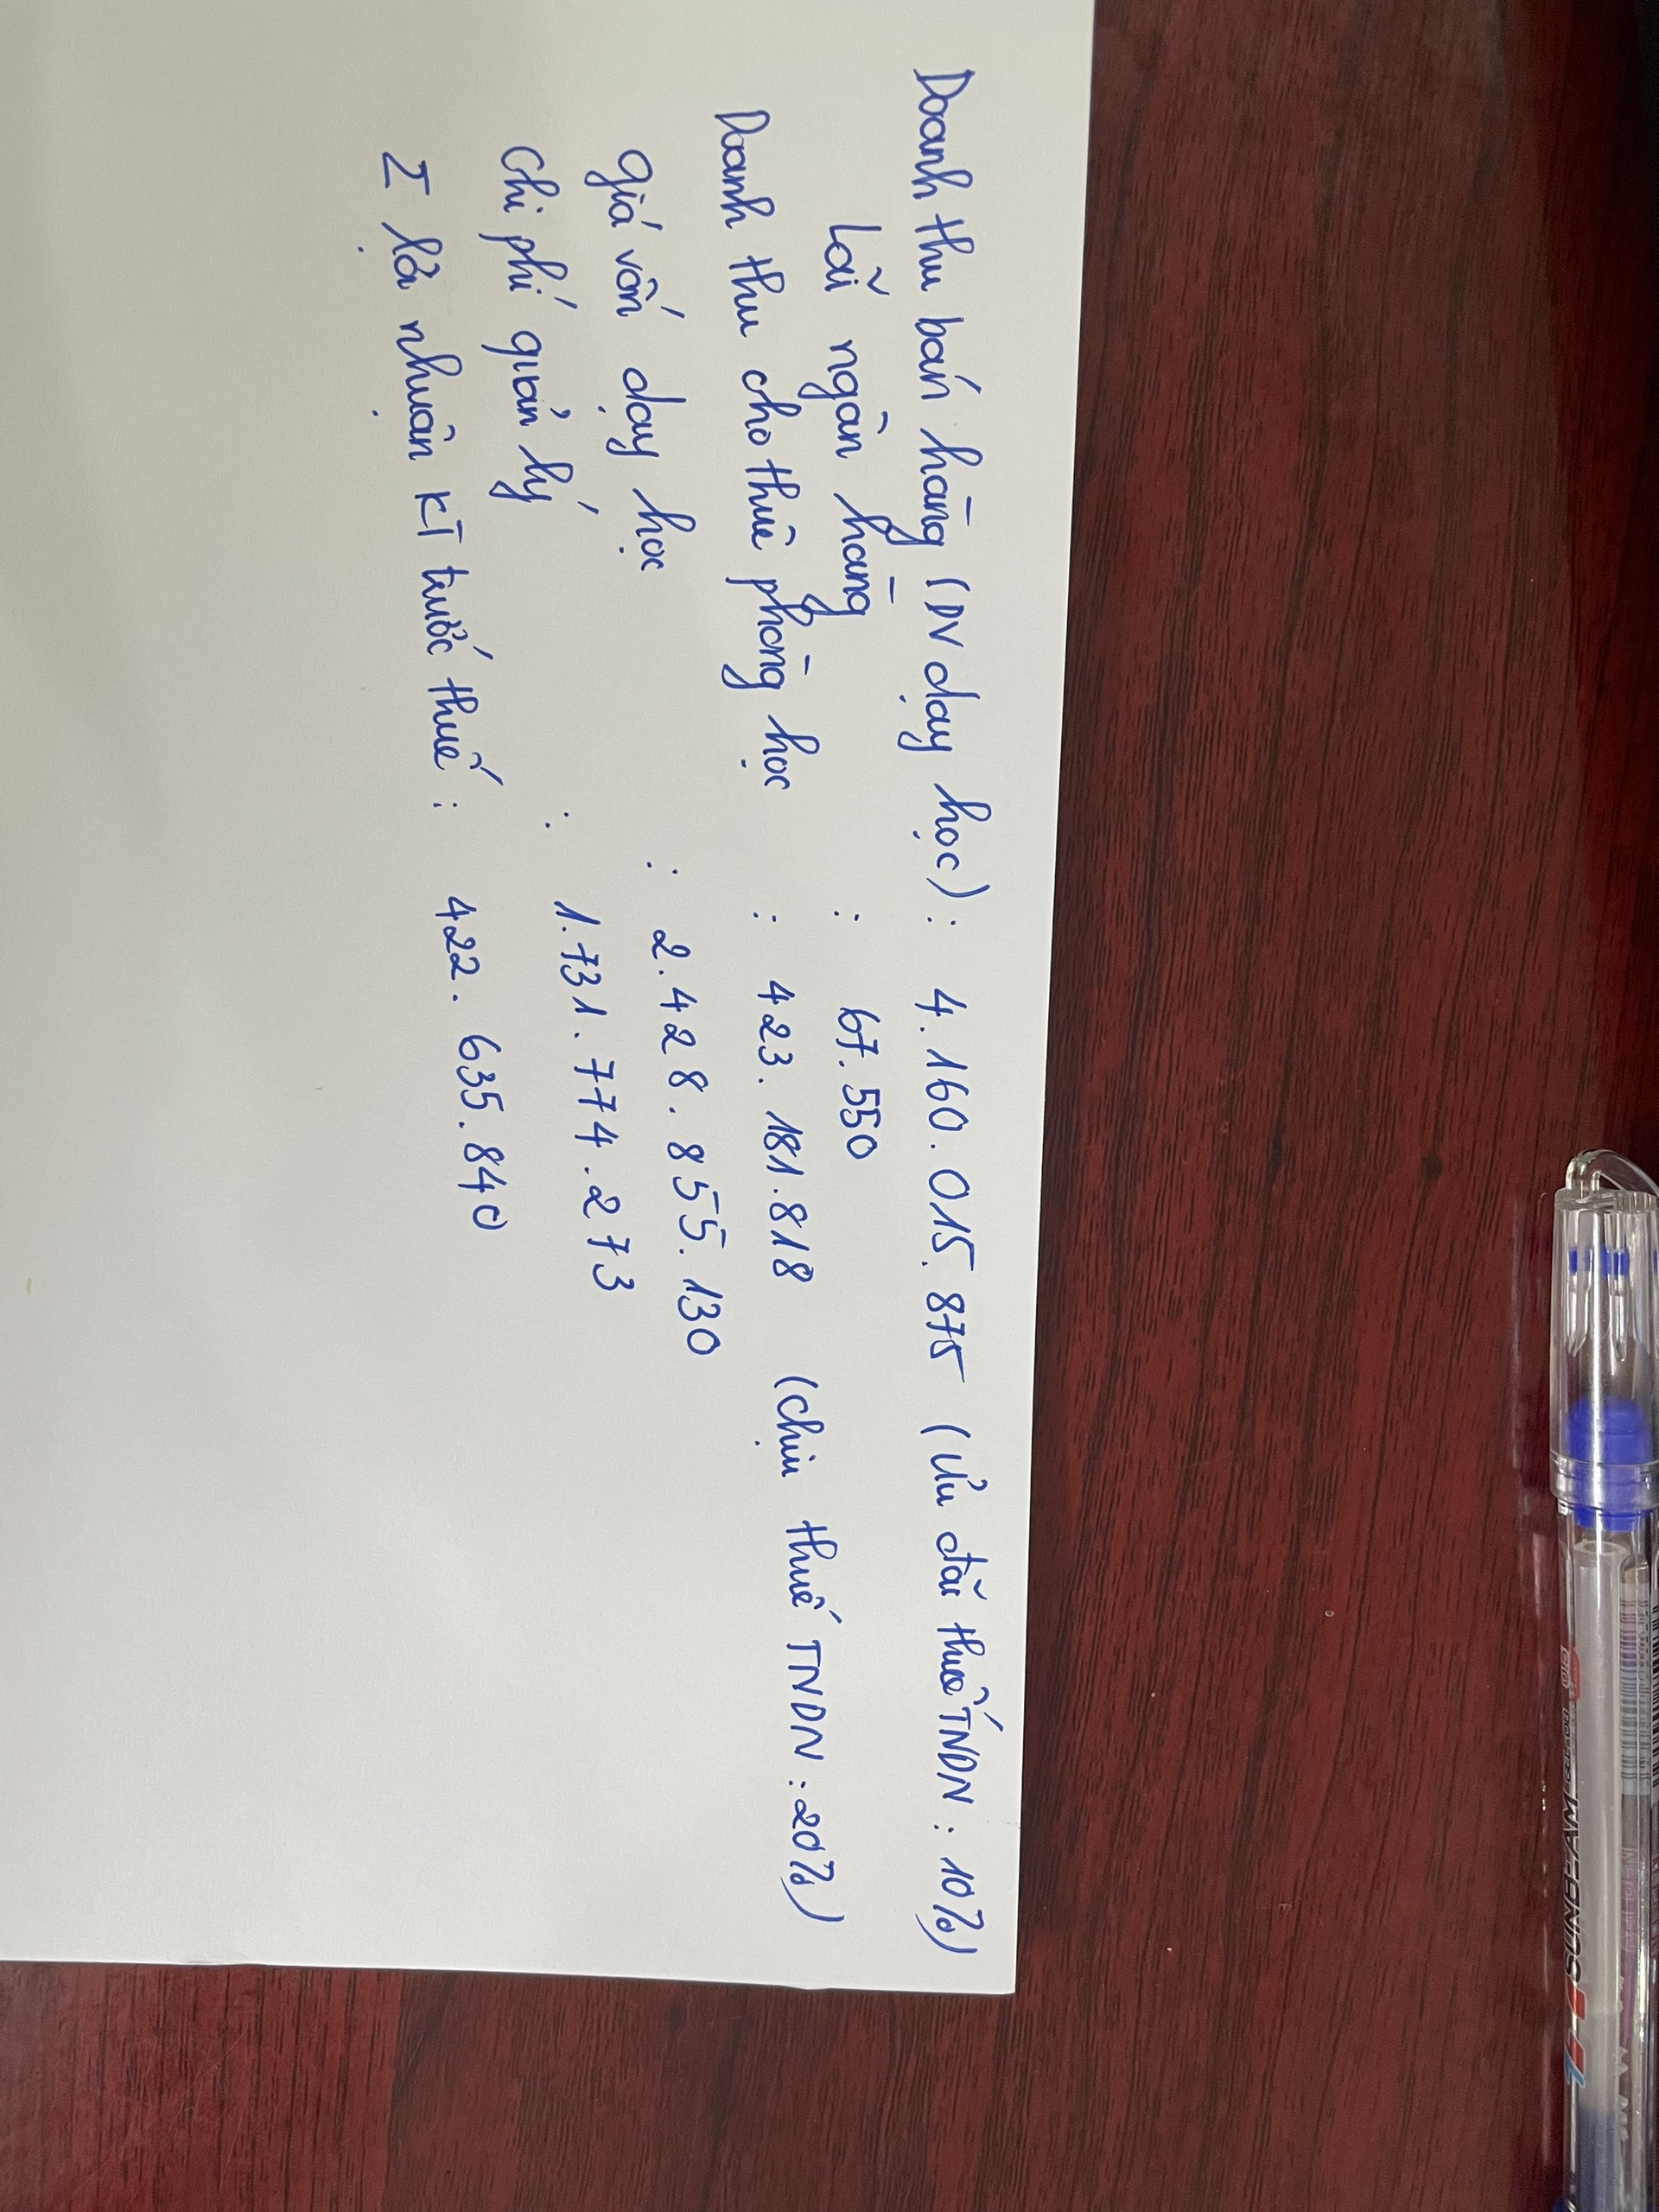 Doanh thu bán hàng (DV dạy học) : 4.160.015.875 (Ưu đãi thuế TNDN : 10%)
Lãi ngân hàng : 67.550
Doanh thu cho thuê phòng học : 423.181.818 (chịu thuế TNDN : 20%)
giá vốn dạy học : 2.428.855.130
Chi phí quản lý : 1.731.774.273
Σ lợi nhuận KT trước thuế : 422.635.840
SUNBEAM